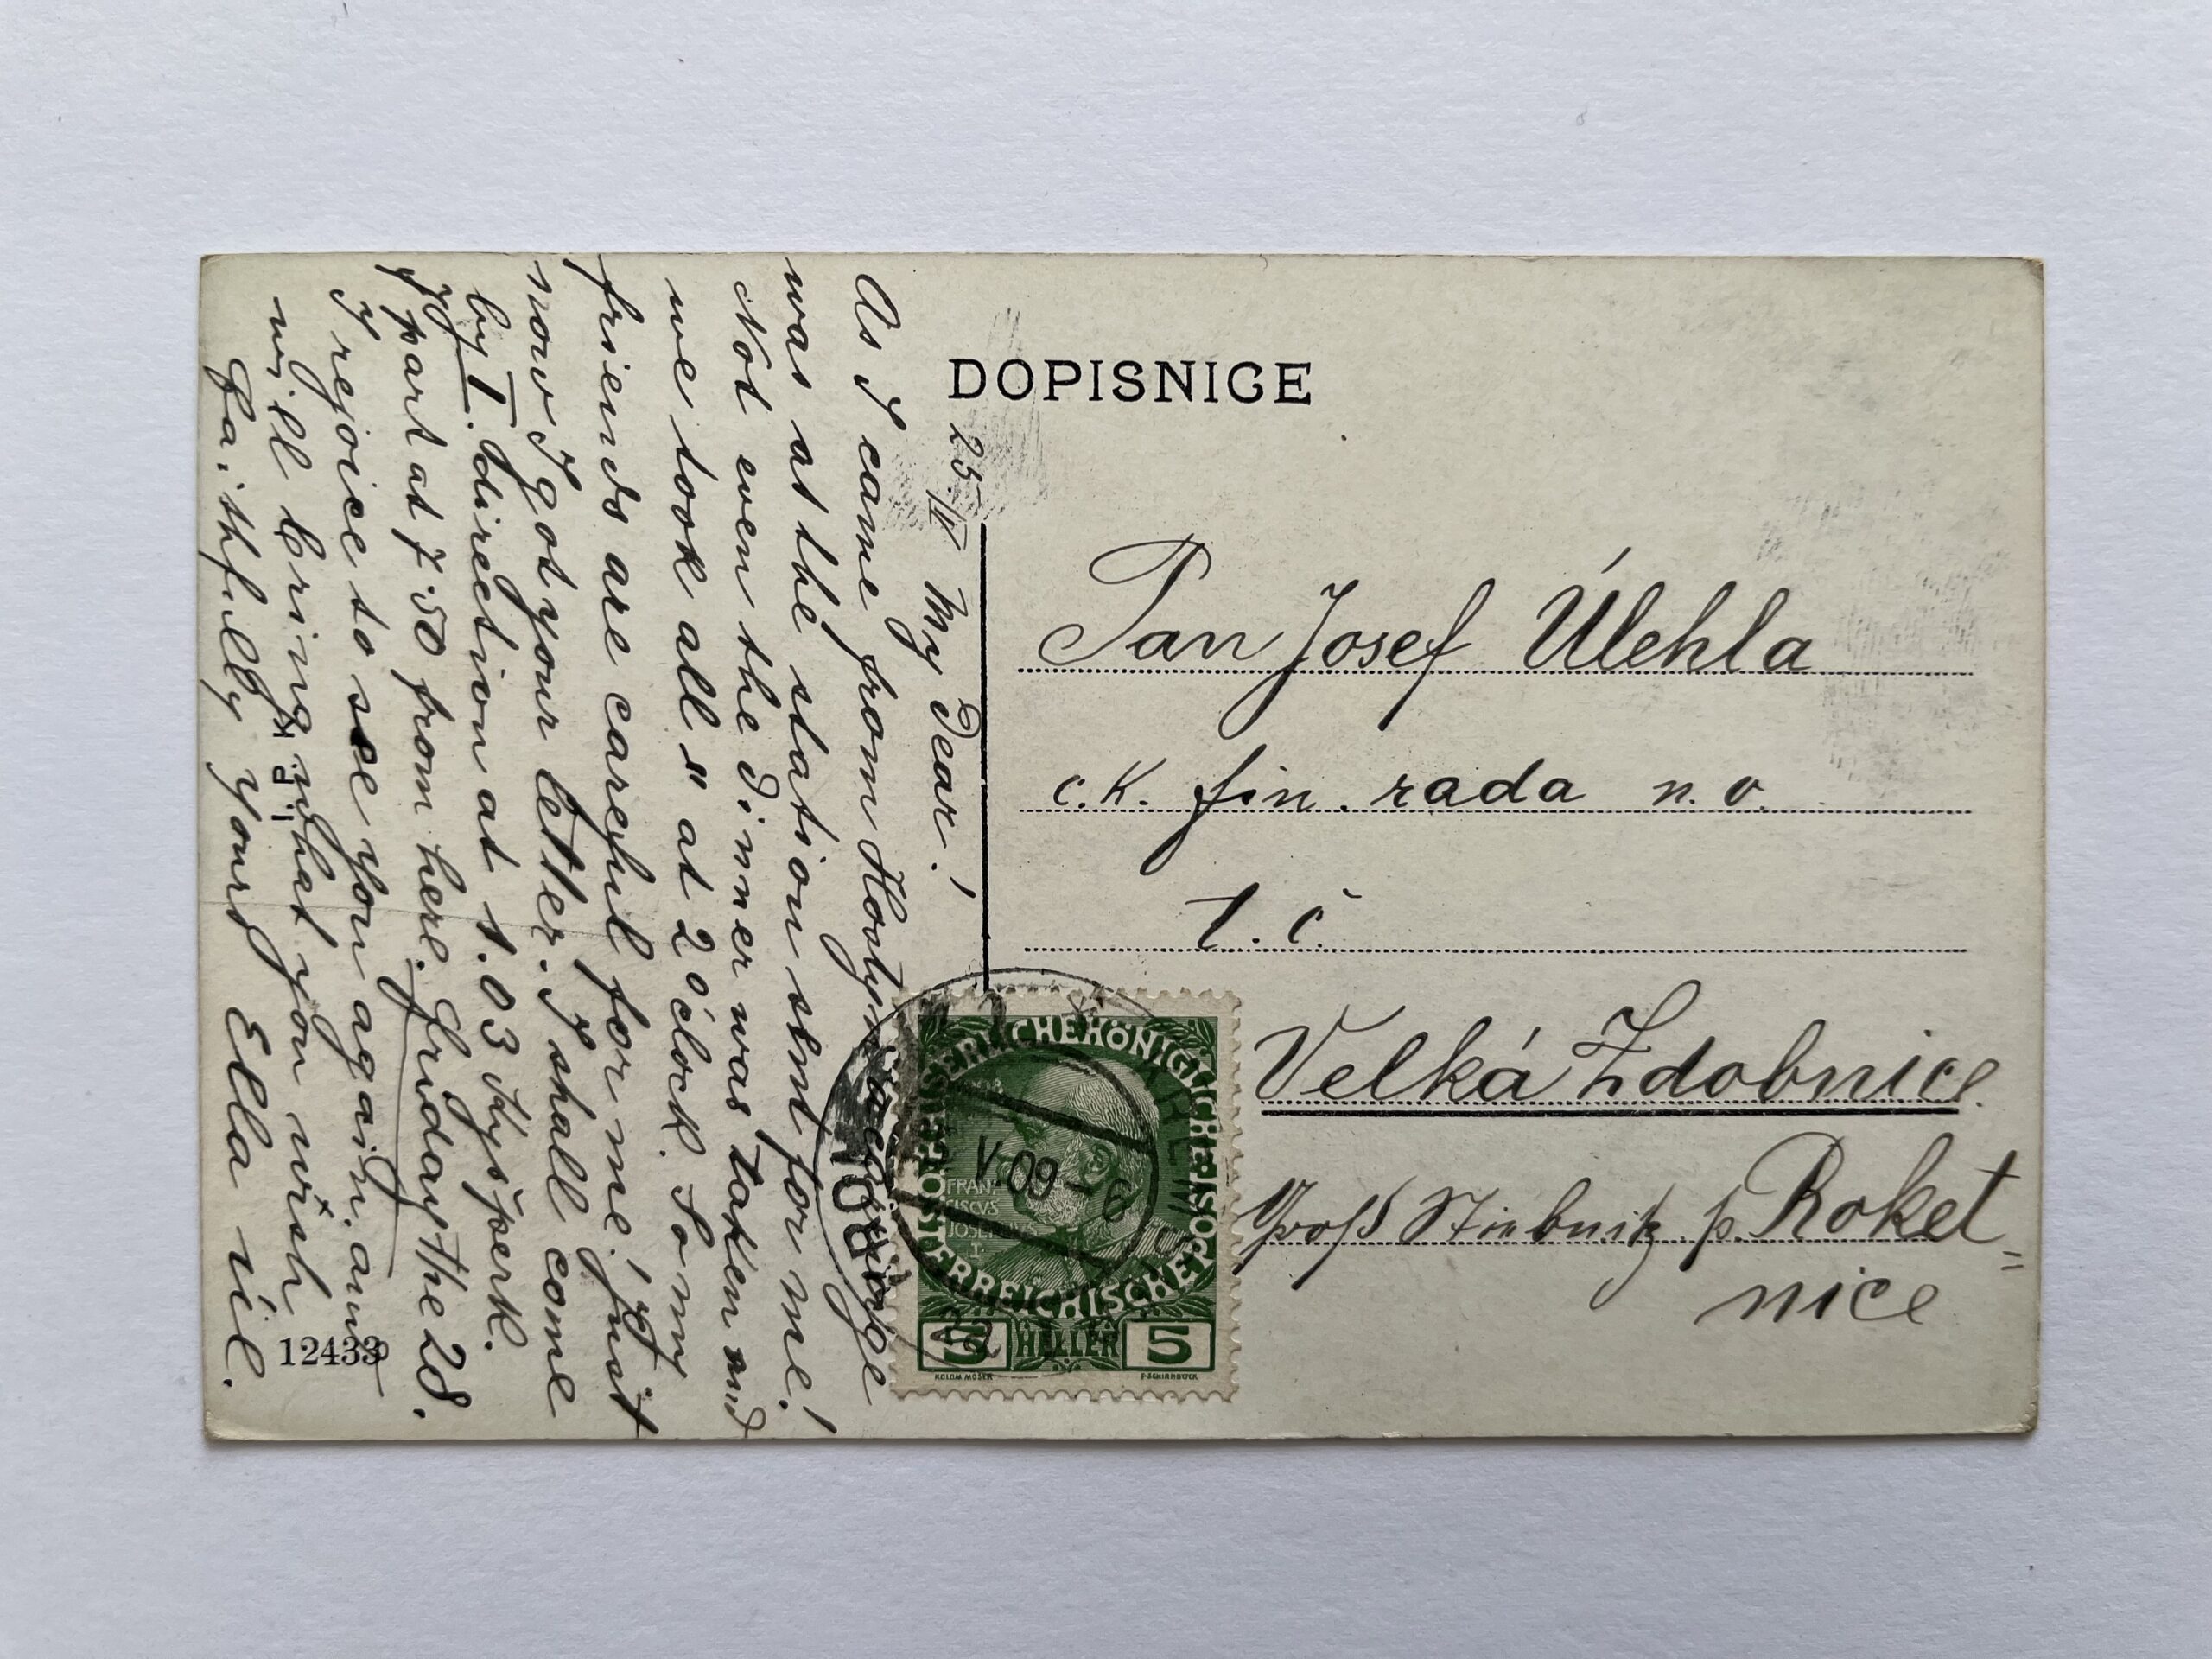 DOPISNICE
25./V My Dear!
As I came from
was at the station sent for me!
Not even the dinner was taken and
we took all " at 2 o'clock. So my
friends are careful for me! Just
now I got your letter. I shall come
by I. direction at 1.03 Kyšperk.
I part at 7.50 from here. Friday the 28.
I rejoice to see you again. and
will bring what you wish
Faithfully yours Ella
12433
Pan Josef Úlehla
c.k. fin. rada n. v.
t. č.
Velká Zdobnice
Groß Stiebnitz p. Roket=
nice
KAISERLICHE KÖNIGLICHE ÖSTERREICHISCHE
1908
FRAN
CISCVS
JOSEPHVS
I.
5 HELLER 5
KOLOM MOSER
F. SCHIRNBÖCK
V-09